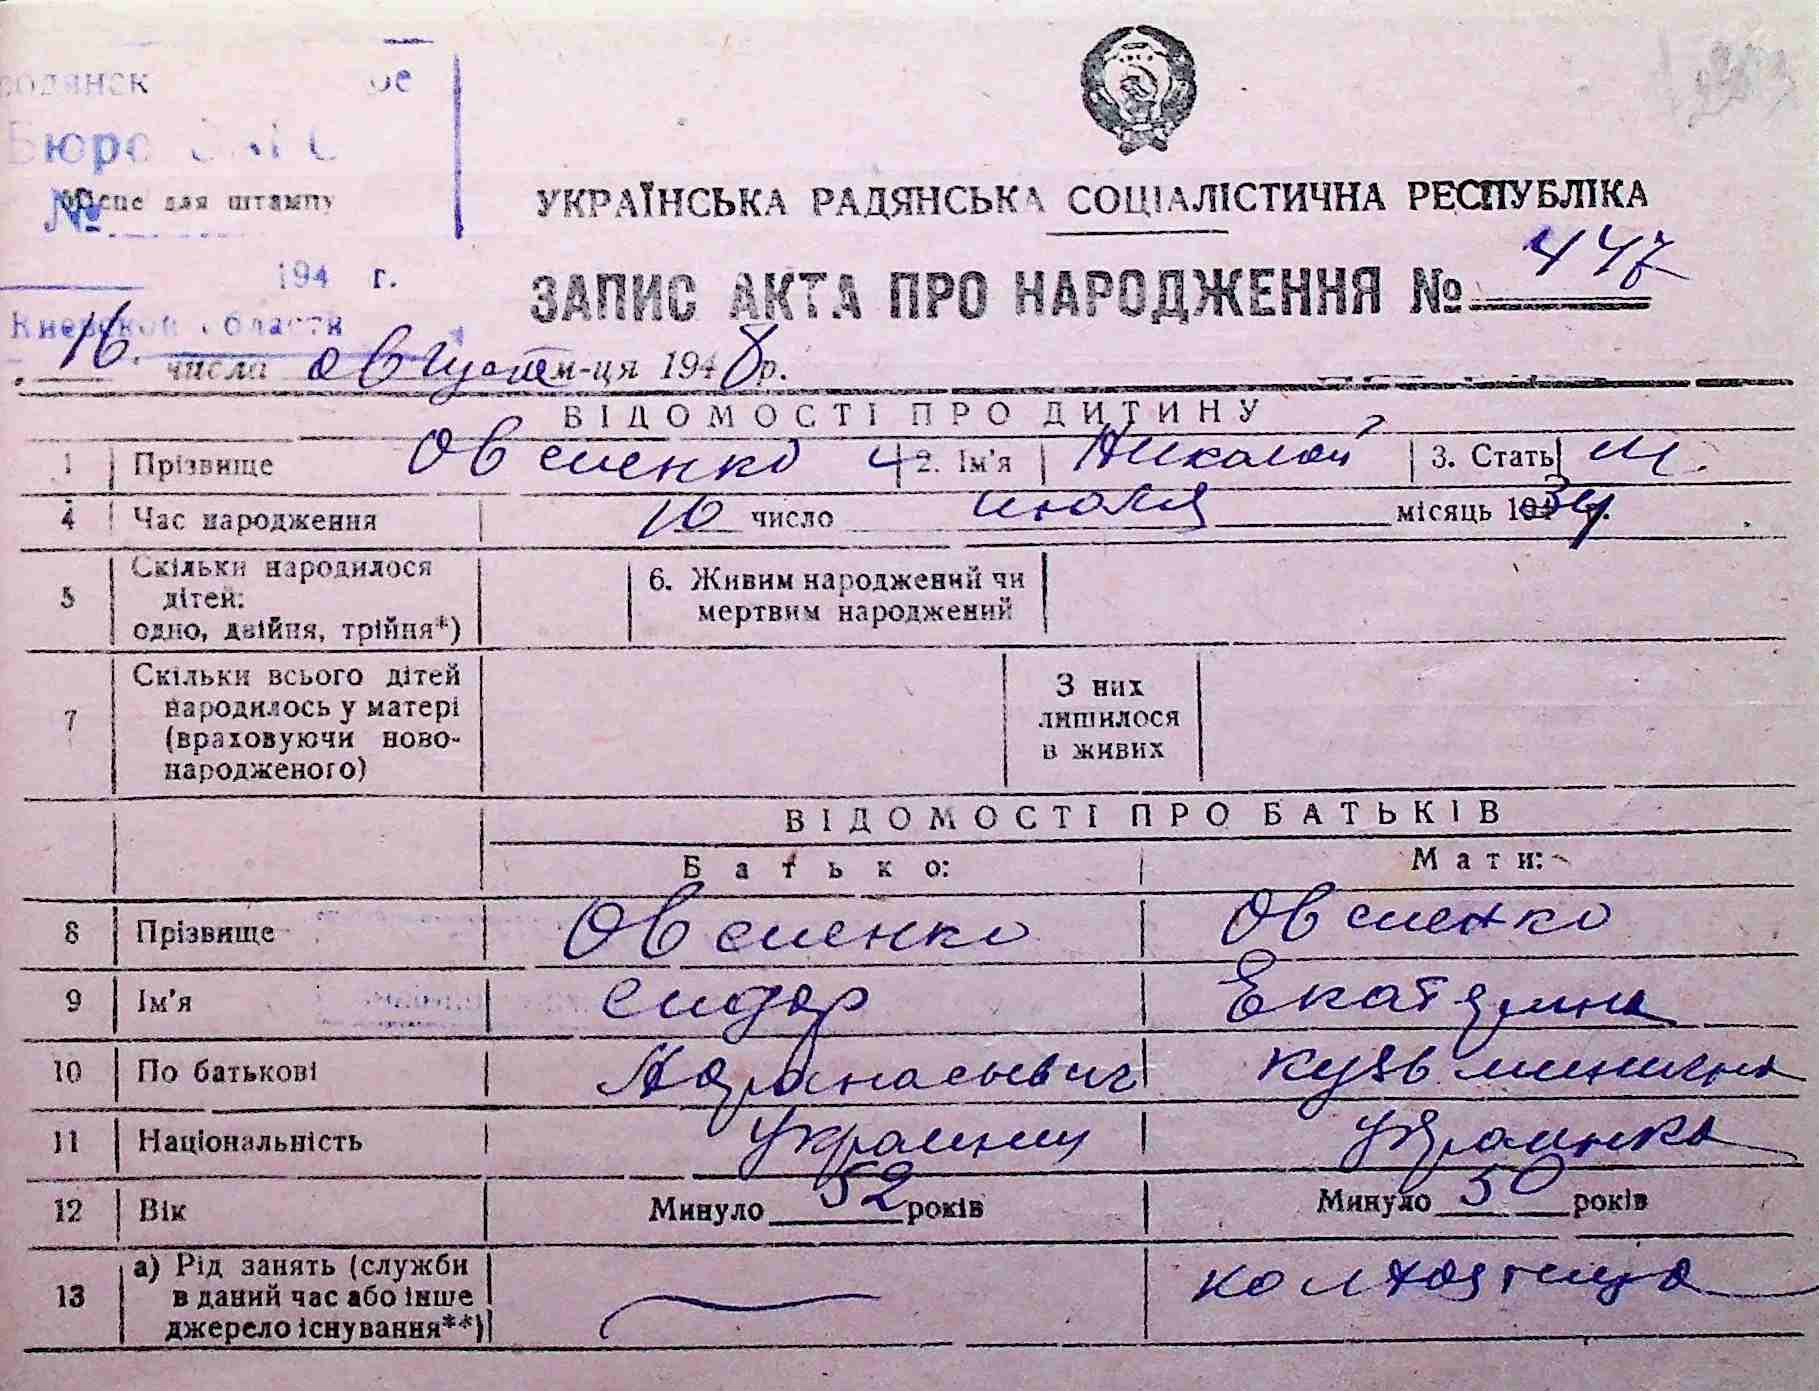 Бюро ЗАГС
місце для штампу
№
194 г.
Киевской области
УКРАЇНСЬКА РАДЯНСЬКА СОЦІАЛІСТИЧНА РЕСПУБЛІКА
ЗАПИС АКТА ПРО НАРОДЖЕННЯ № 447
16 числа августа м-ця 1948 р.
ВІДОМОСТІ ПРО ДИТИНУ
1 Прізвище Овсиенко 2. Ім'я Николай 3. Стать м.
4 Час народження 10 число июля місяць 1934 р.
5 Скільки народилося дітей: одно, двійня, трійня*) 6. Живим народжений чи мертвим народжений
7 Скільки всього дітей народилось у матері (враховуючи ново-народженого) З них лишилося в живих
ВІДОМОСТІ ПРО БАТЬКІВ
Батько: Мати:
8 Прізвище Овсиенко Овсиенко
9 Ім'я Сидор Екатерина
10 По батькові Афанасьевич Кузьминична
11 Національність Украинец Украинка
12 Вік Минуло 52 років Минуло 50 років
13 а) Рід занять (служби в даний час або інше джерело існування**) колхозница